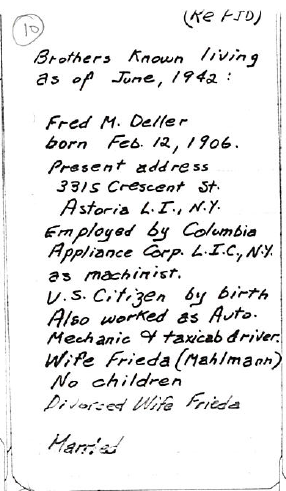 (Re FJD)
10
Brothers Known living
as of June, 1942:
Fred M. Deller
born Feb. 12, 1906.
Present address
3315 Crescent St.
Astoria L.I., N.Y.
Employed by Columbia
Appliance Corp. L.I.C., N.Y.
as machinist.
U.S. Citizen by birth
Also worked as Auto.
Mechanic & taxicab driver.
Wife Frieda (Mahlmann)
No children
Divorced Wife Frieda
Married